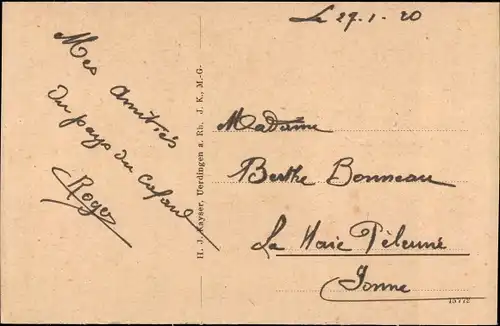 Le 29.1-20
Mes amitiés
du pays du cafard
Roger
H. J. Kayser, Uerdingen a. Rh. J. K., M.-G.
Madame
Berthe Bonneau
La Haie Pèlerine
Yonne